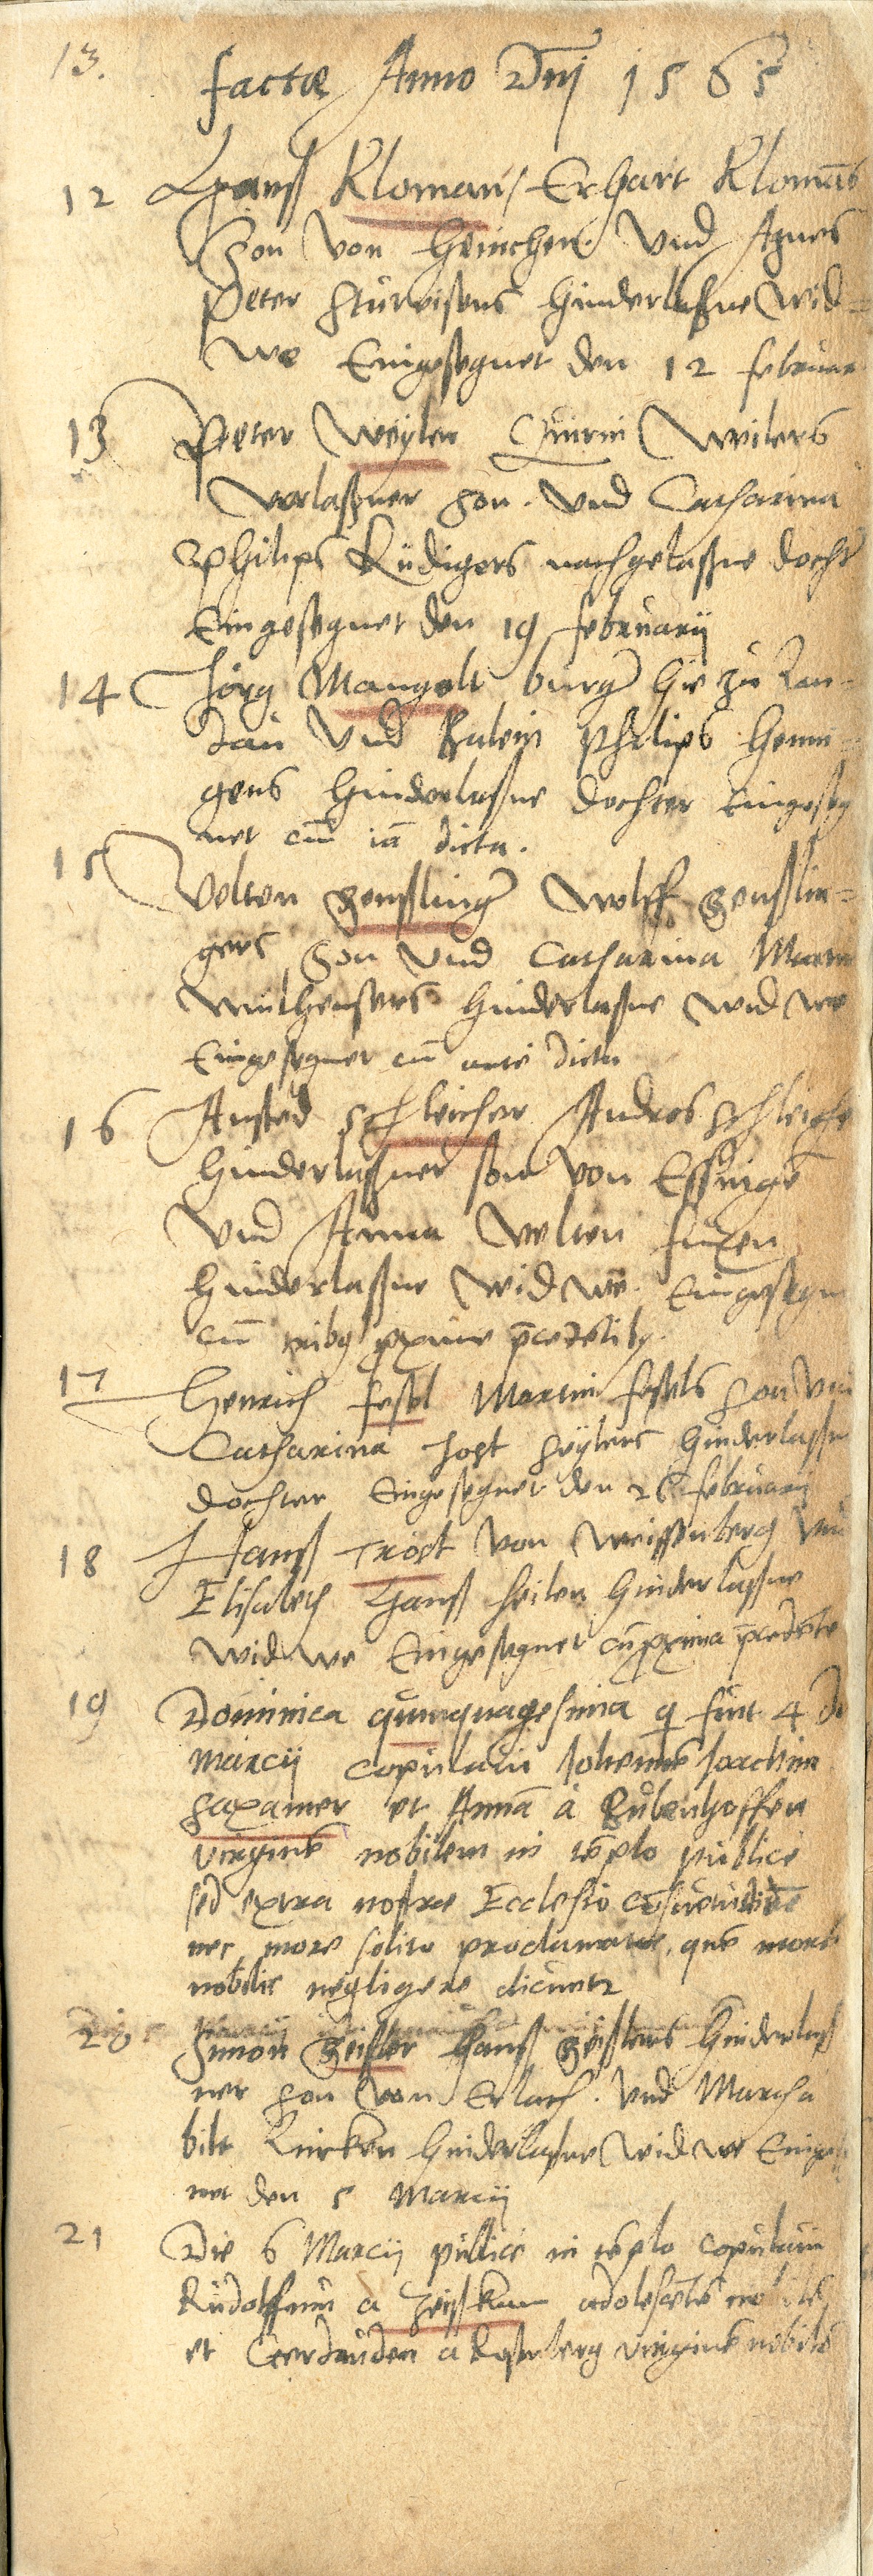 13. factæ Anno Dni 1565
12 Hanß Kloman / Erhart Klomās
Son von Heinchen. Vnd Agnes
Peter hinderlaßne Wid=
we Eingesegnet den 12 februar
13 Peter Weyler Quirin Weilers
verlaßner Son. Vnd Catharina
Philips Rüdigers nachgelaßne docht
Eingesegnet den 19 februarij
14 Jörg Mangolt burger hie zu Lan=
daü Vnd Philips Henni=
gens hinderlaßne dochter Eingeseg
net cū iā dicta.
15 Velten Senßling Wolff Senßlin=
gers Son Vnd Catharina
hinderlaßne Widwe
Eingesegnet cū ante dicta
16 Ansted Schleicher Andres Schleiche
hinderlaßner son von Essinge
Vnd Anna Velten
hinderlaßne Widwe. Eingesegn
cū proxime
17 Henrich fesel Martin fesels Son Vn
Catharina Jost Seylers hinderlaßn
dochter Eingesegnet den 26 februarij
18 Hanß Trost von Weissenberg Vn
Elisabeth Hanß hinderlaßne
Widwe Eingesegnet cū proxima
19 Dominica quinquagesima q fuit 4 d
Marcij copulaui Iohannē Ioachim
et Annā à
virginē nobilem in tēplo publice
sed extra nostræ Ecclesiæ cōsuetudinē
nec more solito proclamatos, quē morē
nobiles negligere dicuntr
20 Simon Geißler Hanß Geißlers hinderlaß
ner Son von Erlach. Vnd Marga
hinderlaßne Widwe Eingeseg
net den 5 Marcij
21 Die 6 Marcij publicè in tēplo copulaui
Rudolffum à Zeißkam adolescētē nobilē
et à Rosenberg virginē nobilē